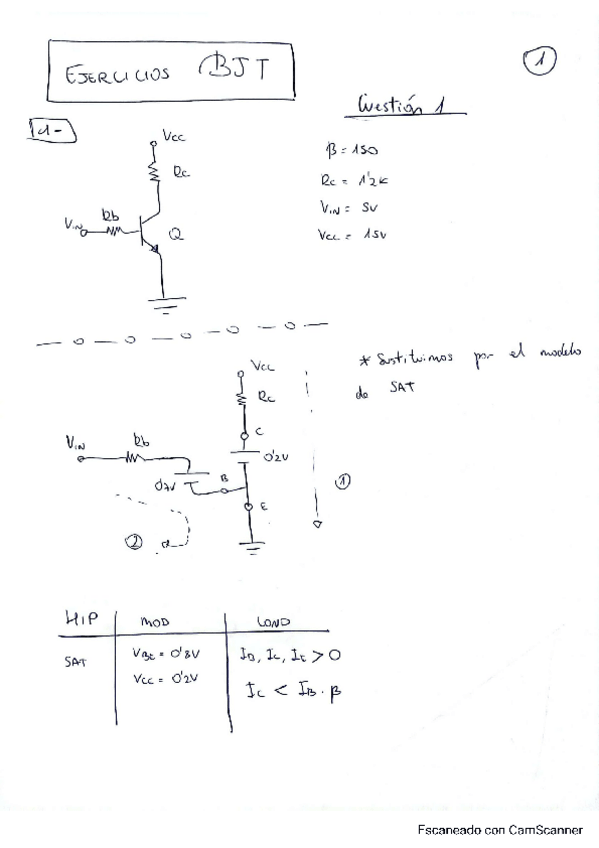 EJERCICIOS BJT
1
Cuestión 1
1-
Vcc
Rc
VIN
Rb
Q
β = 150
Rc = 1'2K
VIN = 5V
Vcc = 15V
* Sustituimos por el modelo
de SAT
Vcc
Rc
C
VIN
Rb
0'2V
B
E
1
2
HIP MOD COND
SAT VBE = 0'8V IB, IC, IE > 0
VCC = 0'2V IC < IB · β
Escaneado con CamScanner